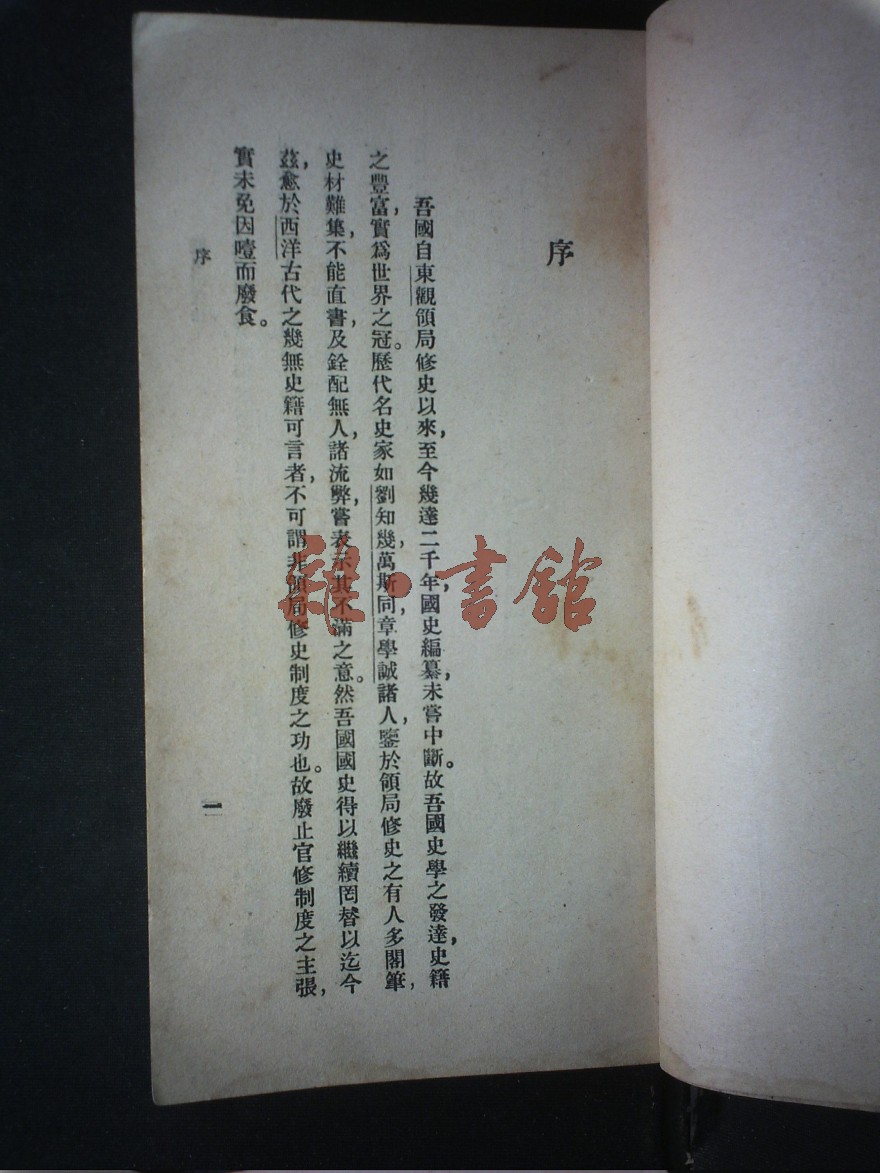 序
吾國自東觀領局修史以來，至今幾達二千年，國史編纂，未嘗中斷。故吾國史學之發達，史籍
之豐富，實爲世界之冠。歷代名史家如劉知幾，萬斯同，章學誠諸人，鑒於領局修史之有人多閣筆，
史材難集，不能直書，及銓配無人，諸流弊，嘗表示其不滿之意。然吾國國史得以繼續罔替以迄今
茲，愈於西洋古代之幾無史籍可言者，不可謂非領局修史制度之功也。故廢止官修制度之主張，
實未免因噎而廢食。
序
一
程·書館